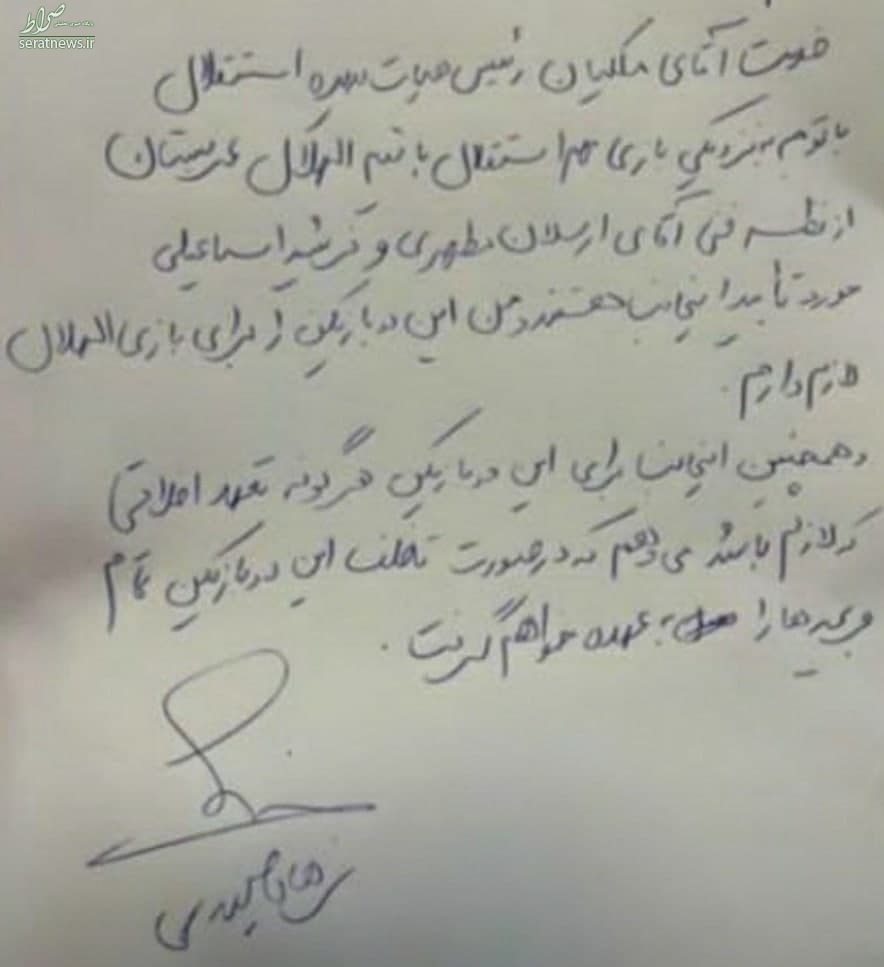 صراط
پایگاه خبری تحلیلی
seratnews.ir
خدمت آقای ملکیان رئیس هیات مدیره استقلال
با توجه به نزدیکی بازی مهم استقلال با تیم الهلال عربستان
از نظر فنی آقای ارسلان مطهری و فرشید اسماعیلی
مورد تأیید اینجانب هستند و من این دو بازیکن را برای بازی الهلال
لازم دارم.
و همچنین اینجانب برای این دو بازیکن هرگونه تعهد اخلاقی
که لازم باشد می دهم که در صورت تخلف این دو بازیکن تمام
جریمه ها را به عهده خواهم گرفت.